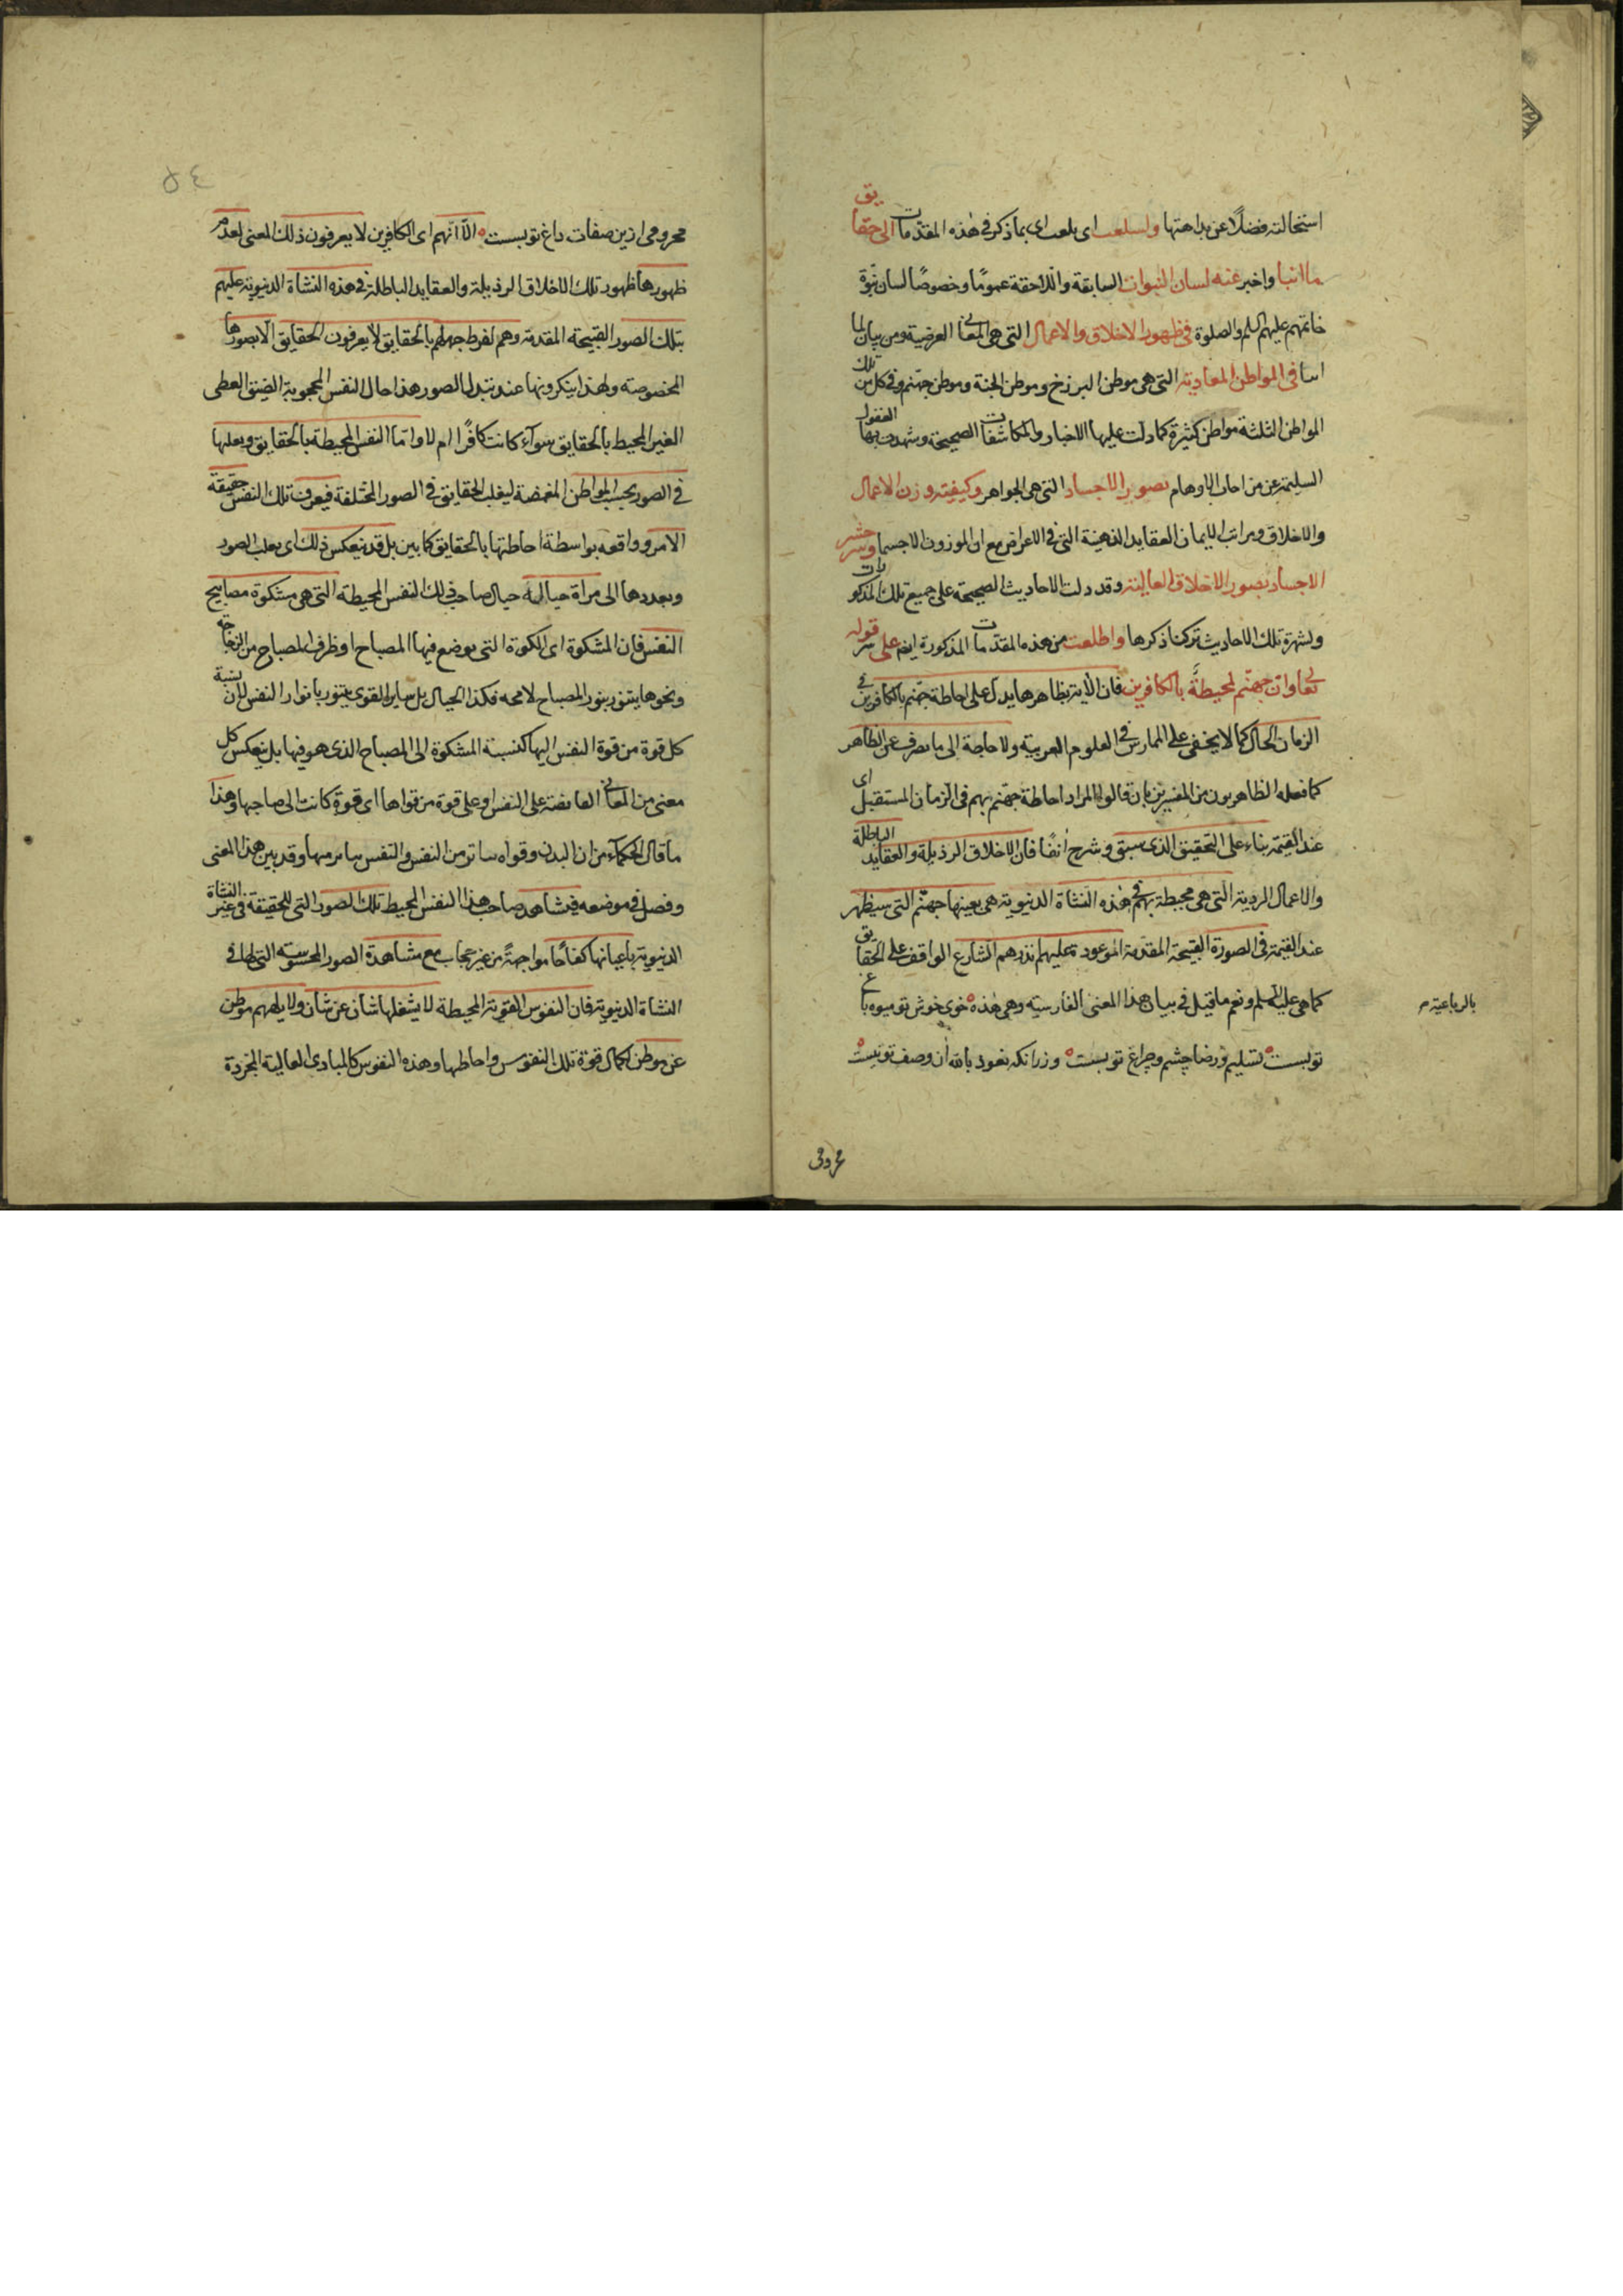 استحالته فضلًا عن بداهتها واسلعت اى بلعت اى بما ذكر فى هذه المقدمات الى حقايق
ما انبا واخبر عنه لسان النبوات السابقة واللاحقة عمومًا وخصوصًا لسان نبوة
خاتمهم عليهم السلم والصلوة فى ظهور الاخلاق والاعمال التى هى المعانى العرضية ومن بيان لما
فى المواطن المعادية التى هى موطن البرزخ وموطن الجنة وموطن جهنم وفى كل من تلك
المواطن الثلثة مواطن كثيرة كما دلت عليها الاخبار والمكاشفات الصحيحة وشهدت بها العقول
السليمة عن الاوهام بصور الاجساد التى هى الجواهر وكيفية وزن الاعمال
والاخلاق ومراتب الايمان العقايد الذهنية التى فى الاعراض مع ان الموزون الاجسام وسر حشر
الاجساد بصور الاخلاق العالية وقد دلت الاحاديث الصحيحة على جميع تلك المذكورات
ولشهرة تلك الاحاديث تركنا ذكرها واطلعت من هذه المقدمات المذكورة ايضا على سر قوله
تعالى وان جهنم لمحيطة بالكافرين فان الاية بظاهرها يدل على احاطة جهنم بالكافرين فى
الزمان الحال كما لا يخفى على الممارس فى العلوم العربية ولا حاجة الى ما يصرف عن الظاهر
كما فعله الظاهريون من المفسرين بان قالوا المراد احاطة جهنم بهم فى الزمان المستقبل اى
عند القيمة بناء على التحقيق الذى سبق وشرح انفًا فان الاخلاق الرذيلة والعقايد الباطلة
والاعمال الردية التى هى محيطة بهم فى هذه النشاة الدنيوية هى بعينها جهنم التى سيظهر
عند القيمة فى الصورة القبيحة المقدمة الموعود عليهم الشارع الواقف على الحقايق
كما هى عليه السلم ونعم ما قيل فى بيان هذا المعنى الفارسية وهى هذه خوى خوش تو ميوه باغ
بالرباعية
توبست تسليم ورضا چشم وچراغ توبست وزرانكه نعوذ بالله آن وصف تونيست
محرومى
محرومى ازين صفات داغ توبست الا انهم اى الكافرين لا يعرفون ذلك المعنى لعدم
ظهورها ظهور تلك الاخلاق الرذيلة والعقايد الباطلة فى هذه النشاة الدنيوية عليهم
بتلك الصور القبيحة المقدمة وهم لفرط جهلهم بالحقايق لا يعرفون الحقايق الا بصورها
المخصوصة ولهذا ينكرونها عند تبدل الصور هذا حال النفس المحجوبة الضيق العطى
الغير المحيط بالحقايق سوآء كانت كافرًا ام لا واما النفس المحيطة بالحقايق وبعلها
فى الصور بحسب المواطن المقتضية ليغلب الحقايق فى الصور المختلفة فيعرف تلك النفس حقيقة
الامر وواقعه بواسطة احاطتها بالحقايق كما بين بل قد ينعكس ذلك اى بعلب الصور
وبعددها الى مراة خيالية خيال صاحب ذلك النفس المحيطة التى هى مشكوة مصابيح
النفس فان المشكوة اى الكورة التى يوضع فيها المصباح او ظرف المصباح من الزجاجة
ونحوها يتنور بنور المصباح لا محه فكذا الخيال بل ساير القوى يتنور بانوار النفس لان نسبة
كل قوة من قوة النفس اليها كنسبة المشكوة الى المصباح الذى هو فيها بل ينعكس كل
معنى من المعانى الفايضة على النفس او على قوة من قواها اى قوة كانت الى صاحبها وهذا
ما قال الحكمآء من ان البدن وقواه ساتر من النفس والنفس يتاثر منها وقد بين هذا المعنى
وفصل فى موضعه فيشاهد صاحب هذا النفس المحيط تلك الصور التى للحقيقة فى غير النشاة
الدنيوية باعيانها كفاحًا مواجهةً من غير حجاب مع مشاهدة الصور المحسوسة التى لها فى
النشاة الدنيوية فان النفوس القوية المحيطة لا يشغلها شأن عن شأن ولا يلههم موطن
عن موطن لكمال قوة تلك النفوس واحاطها وهذه النفوس كالمبادى العالية المجردة